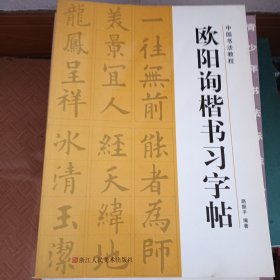 青少年书法
中国书法教程
欧阳询楷书习字帖
路振平 编著
一往無前能者為師
美景宜人經天緯地
龍鳳呈祥冰清玉潔
浙江人民美术出版社